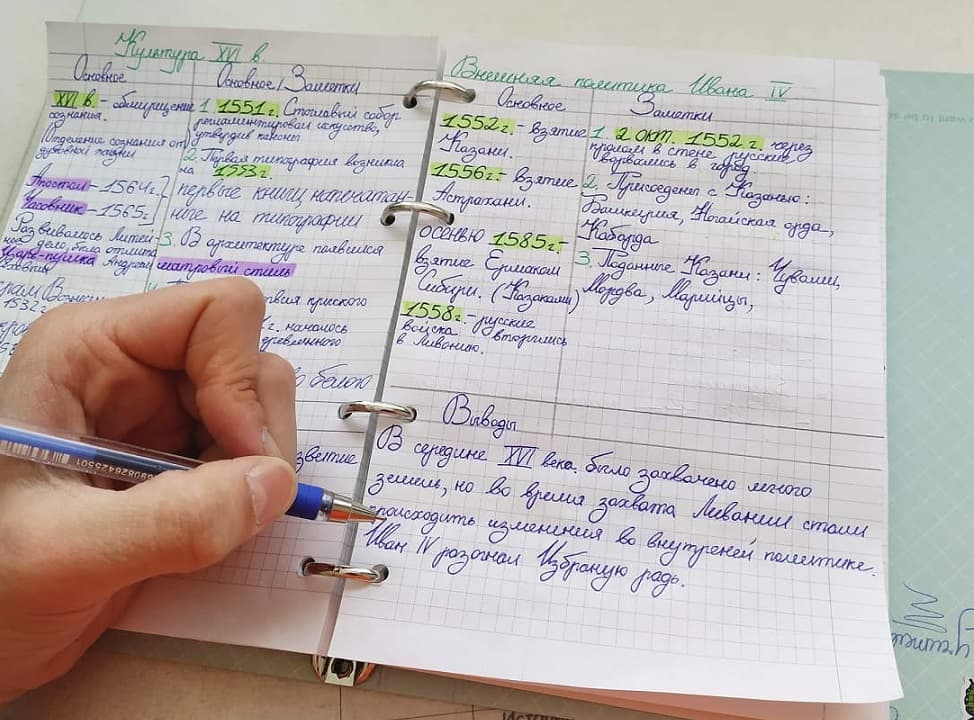 Культура XVI в.
Основное
XVI в. - обмирщение
сознания.
Отделение сознания от
духовной
Апостол - 1564г.
Часовник - 1565г.
Развивалось литей-
ное дело, была отлита
Царь-пушка Андреем
1532г.
Основное/Заметки
1. 1551г. Стоглавый собор
регламентировал искусство,
утвердив каноны
2. Первая типография возникла
на 1553г.
первые книги напечатан-
ные на типографии
3. В архитектуре появился
шатровый стиль
г. началось
белого
Внешняя политика Ивана IV
Основное
1552г. - взятие
Казани.
1556г. - взятие
Астрахани.
осенью 1585г. -
взятие Ермаком
Сибири. (Казаками)
1558г. - русские
войска вторглись
в Ливонию.
Заметки
1. 2 окт. 1552 г. через
пролом в стене русские
ворвались в город.
2. Присоеденен с Казанью:
Башкерия, Ногайская орда,
Кабарда
3. Поданные Казани: Чуваши,
Мордва, Марийцы,
Выводы
В середине XVI века. было захвачено много
земель, но во время захвата Ливании стали
происходить изменения во внутреней политике.
Иван IV разогнал Избраную радь.
9908264255501